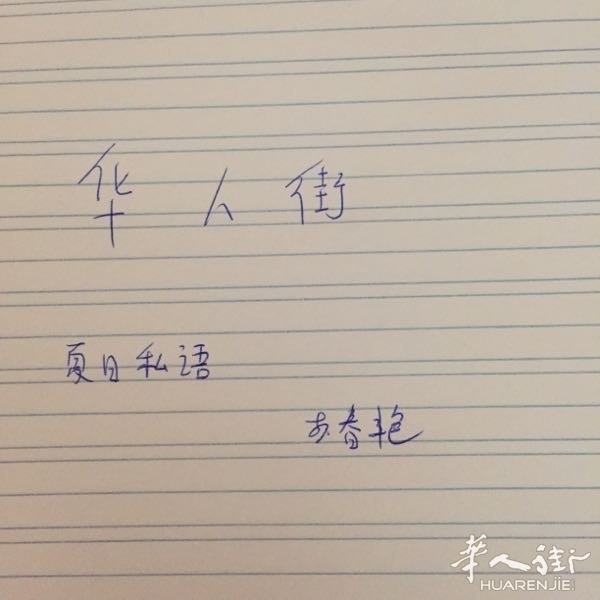 华人街
夏日私语
春艳
华人街
HUARENJIE